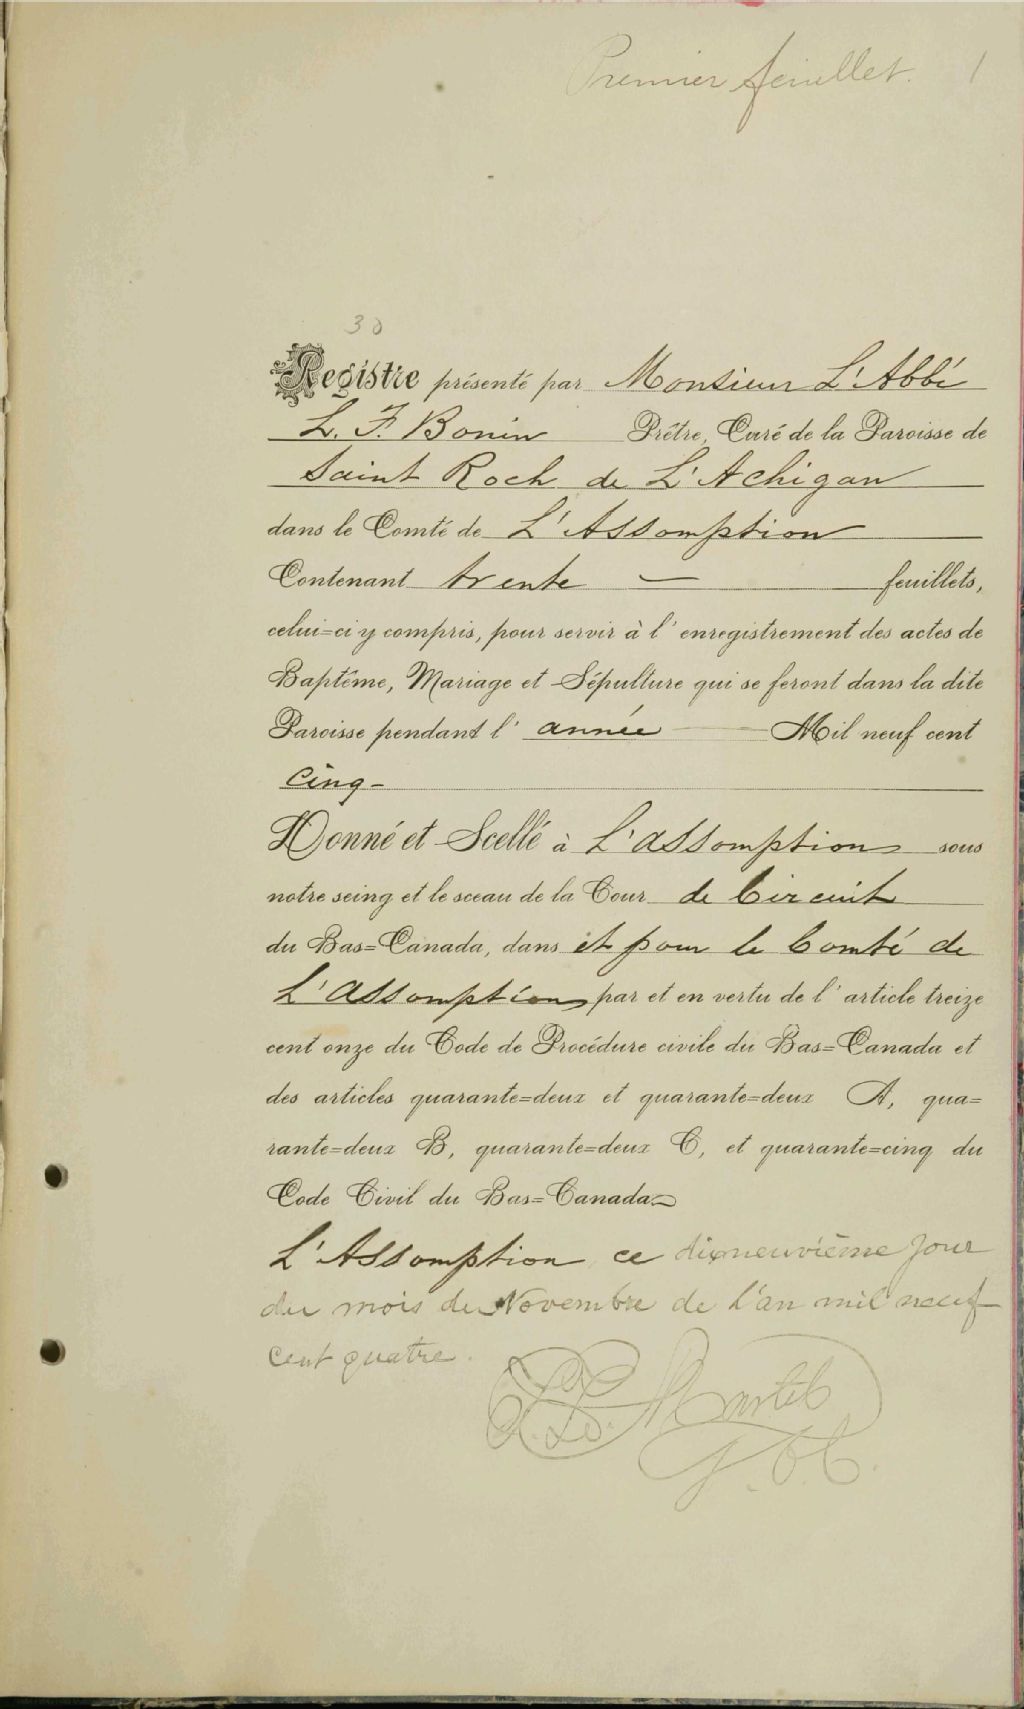 Premier feuillet. 1
30
Registre présenté par Monsieur L'Abbé
L. F. Bonin Prêtre, Curé de la Paroisse de
Saint Roch de L'Achigan
dans le Comté de L'Assomption
Contenant trente — feuillets,
celui=ci y compris, pour servir à l'enregistrement des actes de
Baptême, Mariage et Sépulture qui se feront dans la dite
Paroisse pendant l'année Mil neuf cent
cinq -
Donné et Scellé à L'Assomption sous
notre seing et le sceau de la Cour de Circuit
du Bas=Canada, dans et pour le Comté de
L'Assomption par et en vertu de l'article treize
cent onze du Code de Procédure civile du Bas=Canada et
des articles quarante=deux et quarante=deux A, qua=
rante=deux B, quarante=deux C, et quarante=cinq du
Code Civil du Bas=Canada
L'Assomption ce dixneuvième jour
du mois de Novembre de l'an mil neuf
cent quatre.
Martel